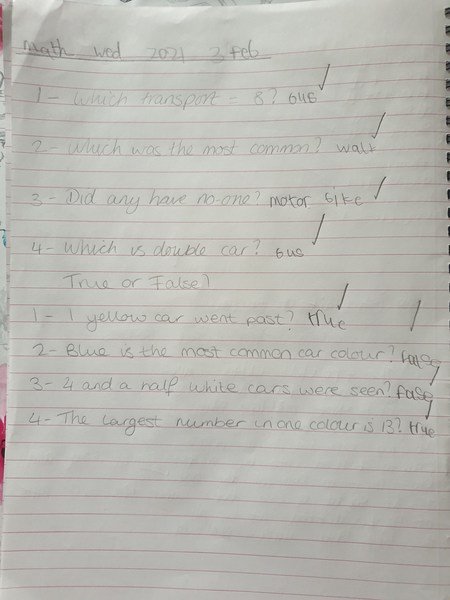 Math Wed 2021 3 Feb
1 - Which transport = 8? bus
2 - Which was the most common? walk
3 - Did any have no-one? motor bike
4 - Which is double car? bus
True or False?
1 - 1 yellow car went past? true
2 - Blue is the most common car colour? false
3 - 4 and a half white cars were seen? false
4 - The largest number in one colour is 13? true